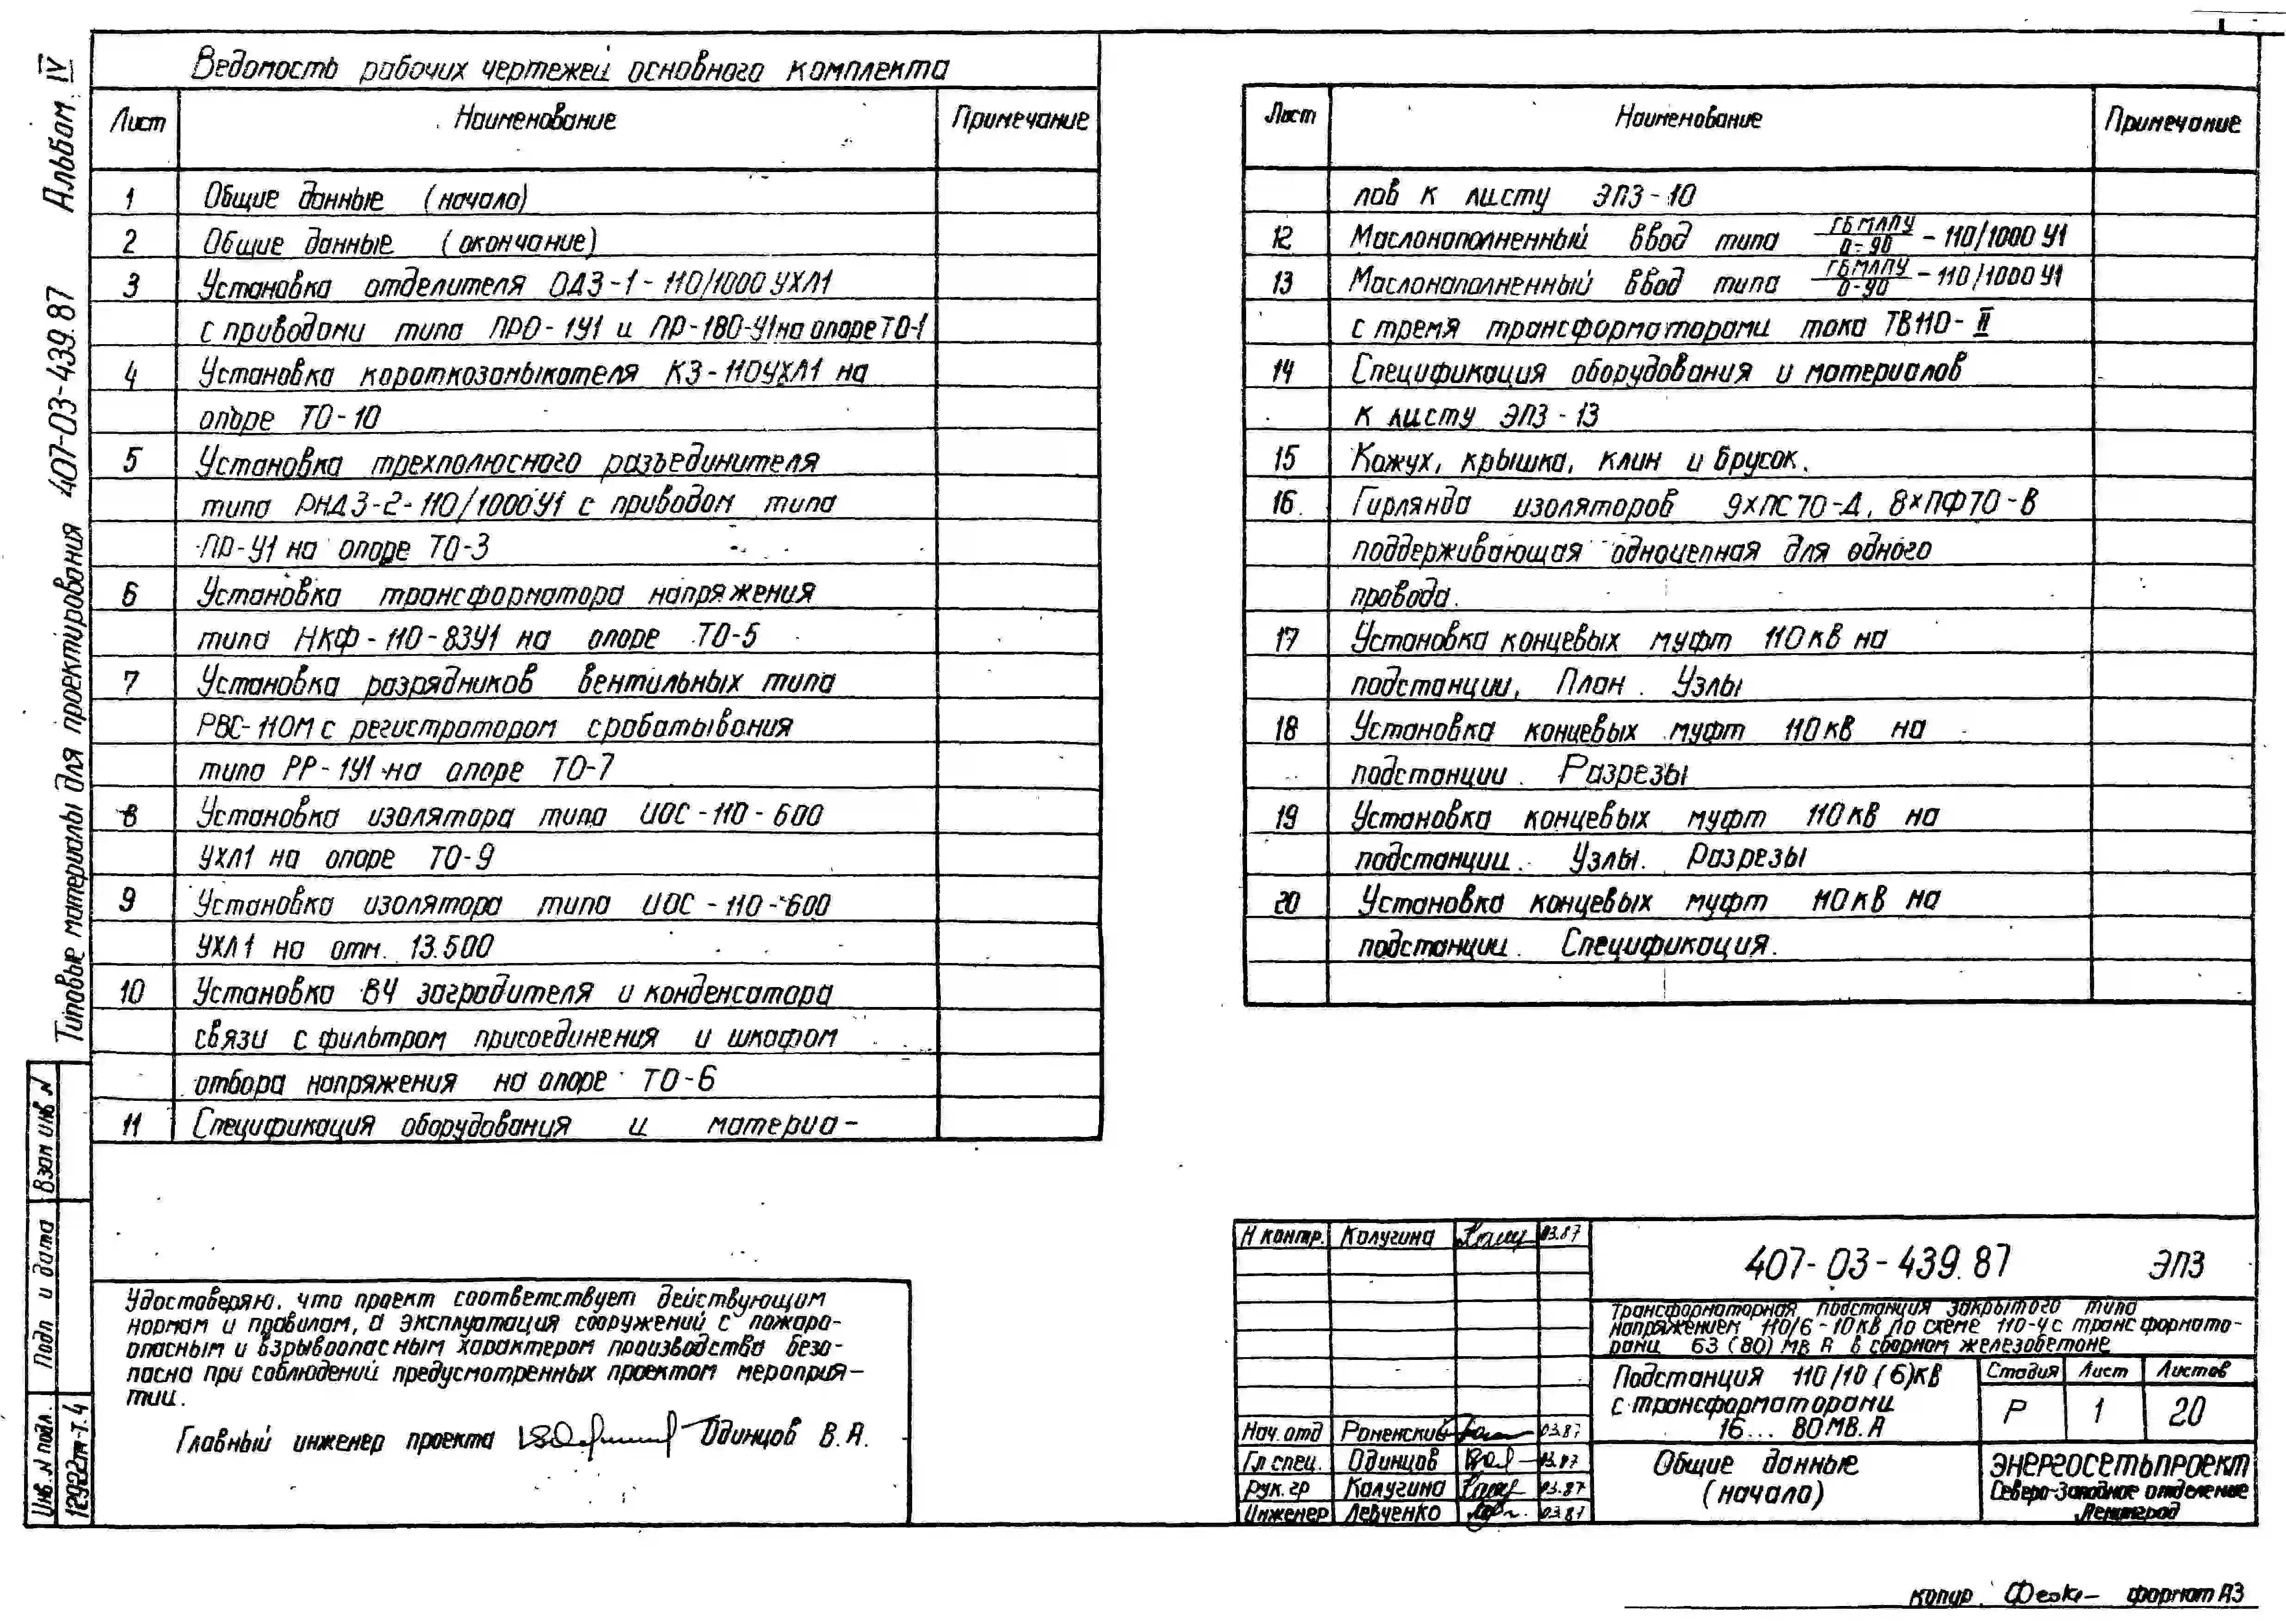 Альбом IV
Типовые материалы для проектирования 407-03-439.87
Ведомость рабочих чертежей основного комплекта
Лист Наименование Примечание
1 Общие данные (начало)
2 Общие данные (окончание)
3 Установка отделителя ОДЗ-1-110/1000 УХЛ1
с приводами типа ПРО-1У1 и ПР-180-У1 на опоре ТО-1
4 Установка короткозамыкателя КЗ-110УХЛ1 на
опоре ТО-10
5 Установка трехполюсного разъединителя
типа РНДЗ-2-110/1000У1 с приводом типа
ПР-У1 на опоре ТО-3
6 Установка трансформатора напряжения
типа НКФ-110-83У1 на опоре ТО-5
7 Установка разрядников вентильных типа
РВС-110М с регистратором срабатывания
типа РР-1У1 на опоре ТО-7
8 Установка изолятора типа ИОС-110-600
УХЛ1 на опоре ТО-9
9 Установка изолятора типа ИОС-110-600
УХЛ1 на отм. 13.500
10 Установка ВЧ заградителя и конденсатора
связи с фильтром присоединения и шкафом
отбора напряжения на опоре ТО-6
11 Спецификация оборудования и материа-
Лист Наименование Примечание
лов к листу ЭПЗ-10
12 Маслонаполненный ввод типа ГБМЛПУ/0-90 - 110/1000 У1
13 Маслонаполненный ввод типа ГБМЛПУ/0-90 - 110/1000 У1
с тремя трансформаторами тока ТВ110-II
14 Спецификация оборудования и материалов
к листу ЭПЗ-13
15 Кожух, крышка, клин и брусок.
16 Гирлянда изоляторов 9хПС70-Д, 8хПФ70-В
поддерживающая одноцепная для одного
провода.
17 Установка концевых муфт 110кВ на
подстанции, План. Узлы
18 Установка концевых муфт 110кВ на
подстанции. Разрезы
19 Установка концевых муфт 110кВ на
подстанции. Узлы. Разрезы
20 Установка концевых муфт 110кВ на
подстанции. Спецификация.
Удостоверяю, что проект соответствует действующим
нормам и правилам, а эксплуатация сооружений с пожаро-
опасным и взрывоопасным характером производства безо-
пасна при соблюдений предусмотренных проектом мероприя-
тии.
Главный инженер проекта Одинцов В.А.
Взам инв N
Подп и дата
Инв. N подл. 12922тм-т.4
Н контр. Калугина 03.87
Нач. отд Роменский 03.87
Гл спец. Одинцов 03.87
Рук. гр Калугина 03.87
Инженер Левченко 03.87
407-03-439.87 ЭПЗ
Трансформаторная подстанция закрытого типа
напряжением 110/6-10кВ по схеме 110-4 с трансформато-
рами 63 (80) МВ А в сборном железобетоне
Подстанция 110/10(6)кВ
с трансформаторами
16... 80МВ.А
Стадия Лист Листов
Р 1 20
Общие данные
(начало)
ЭНЕРГОСЕТЬПРОЕКТ
Северо-Западное отделение
Ленинград
копир. формат А3